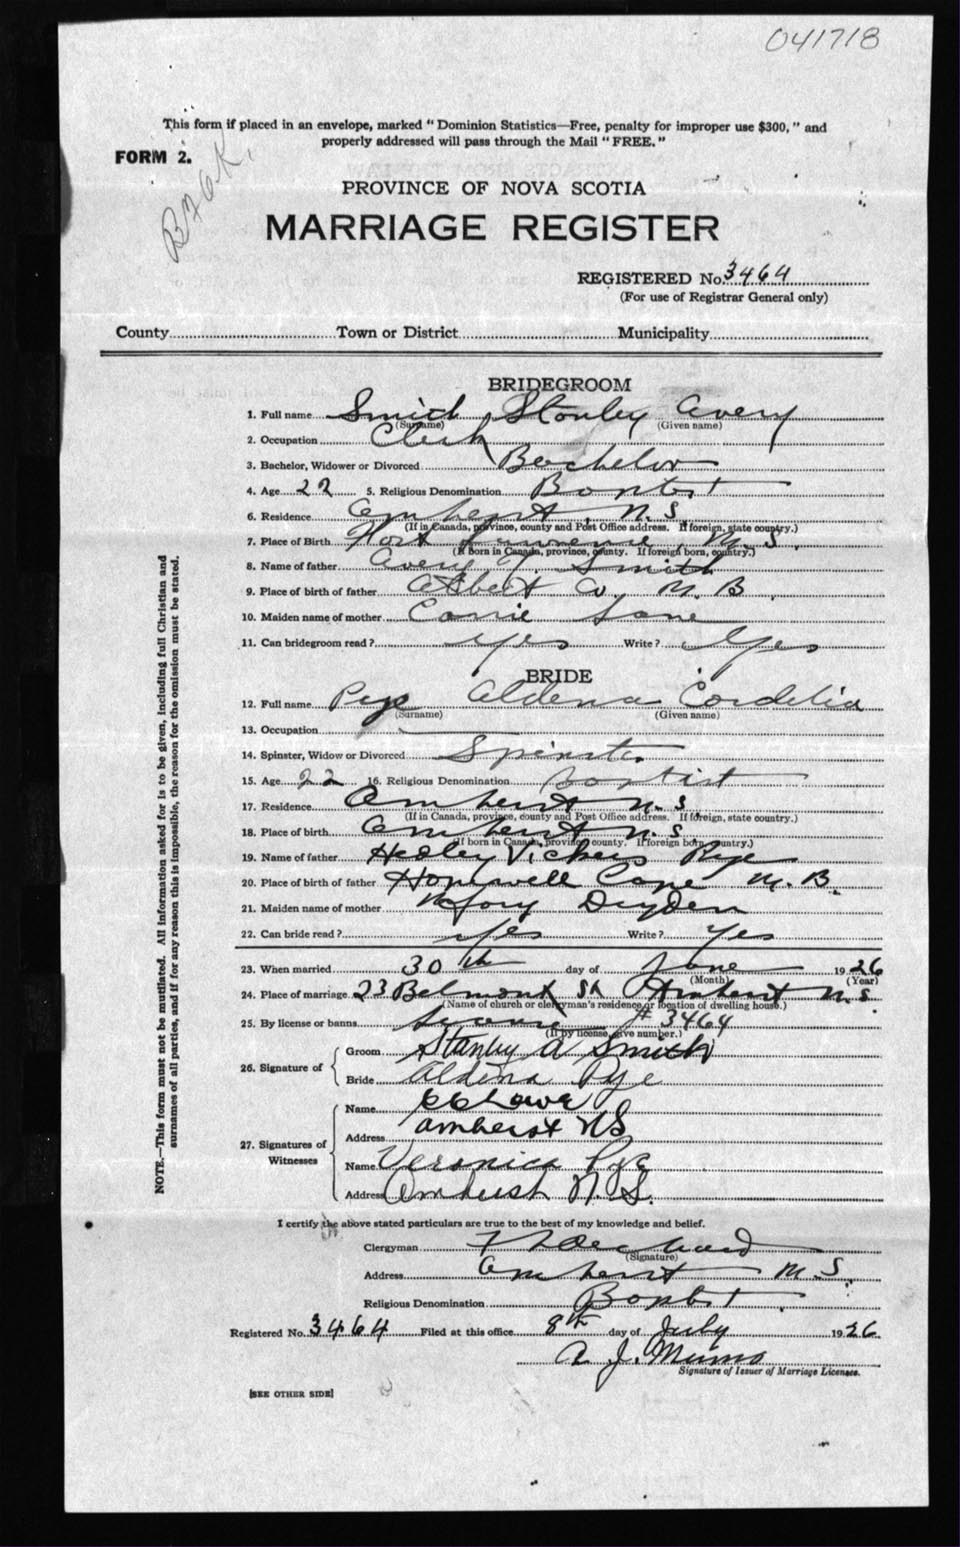 041718
This form if placed in an envelope, marked "Dominion Statistics—Free, penalty for improper use $300," and
properly addressed will pass through the Mail "FREE."
FORM 2.
PROVINCE OF NOVA SCOTIA
MARRIAGE REGISTER
REGISTERED No. 3464
(For use of Registrar General only)
County Town or District Municipality
BRIDEGROOM
1. Full name Smith Stanley Avery
(Surname) (Given name)
2. Occupation Clerk
3. Bachelor, Widower or Divorced Bachelor
4. Age 22 5. Religious Denomination Baptist
6. Residence Amherst N.S.
(If in Canada, province, county and Post Office address. If foreign, state country.)
7. Place of Birth Port Lawrence N.S.
(If born in Canada, province, county. If foreign born, country.)
8. Name of father Avery Smith
9. Place of birth of father Albert Co N.B.
10. Maiden name of mother Carrie
11. Can bridegroom read? Yes Write? Yes
BRIDE
12. Full name Pye Aldena Cordelia
(Surname) (Given name)
13. Occupation
14. Spinster, Widow or Divorced Spinster
15. Age 22 16. Religious Denomination Baptist
17. Residence Amherst N.S.
(If in Canada, province, county and Post Office address. If foreign, state country.)
18. Place of birth Amherst N.S.
(If born in Canada, province, county. If foreign born, country.)
19. Name of father Hedley Vickers Pye
20. Place of birth of father Hopewell Cape N.B.
21. Maiden name of mother Mary Dryden
22. Can bride read? Yes Write? Yes
23. When married 30th day of June 1926
(Month) (Year)
24. Place of marriage 23 Belmont St Amherst N.S.
(Name of church or clergyman's residence or location of dwelling house.)
25. By license or banns License #3464
(If by license, give number.)
26. Signature of
Groom Stanley A Smith
Bride Aldena Pye
27. Signatures of Witnesses
Name Lowe
Address Amherst NS
Name Veronica Pye
Address Amherst N.S.
NOTE.—This form must not be mutilated. All information asked for is to be given, including full Christian and
surnames of all parties, and if for any reason this is impossible, the reason for the omission must be stated.
I certify the above stated particulars are true to the best of my knowledge and belief.
Clergyman
(Signature)
Address Amherst N.S.
Religious Denomination Baptist
Registered No. 3464 Filed at this office 8th day of July 1926
A. J. Munro
Signature of Issuer of Marriage Licenses.
[SEE OTHER SIDE]